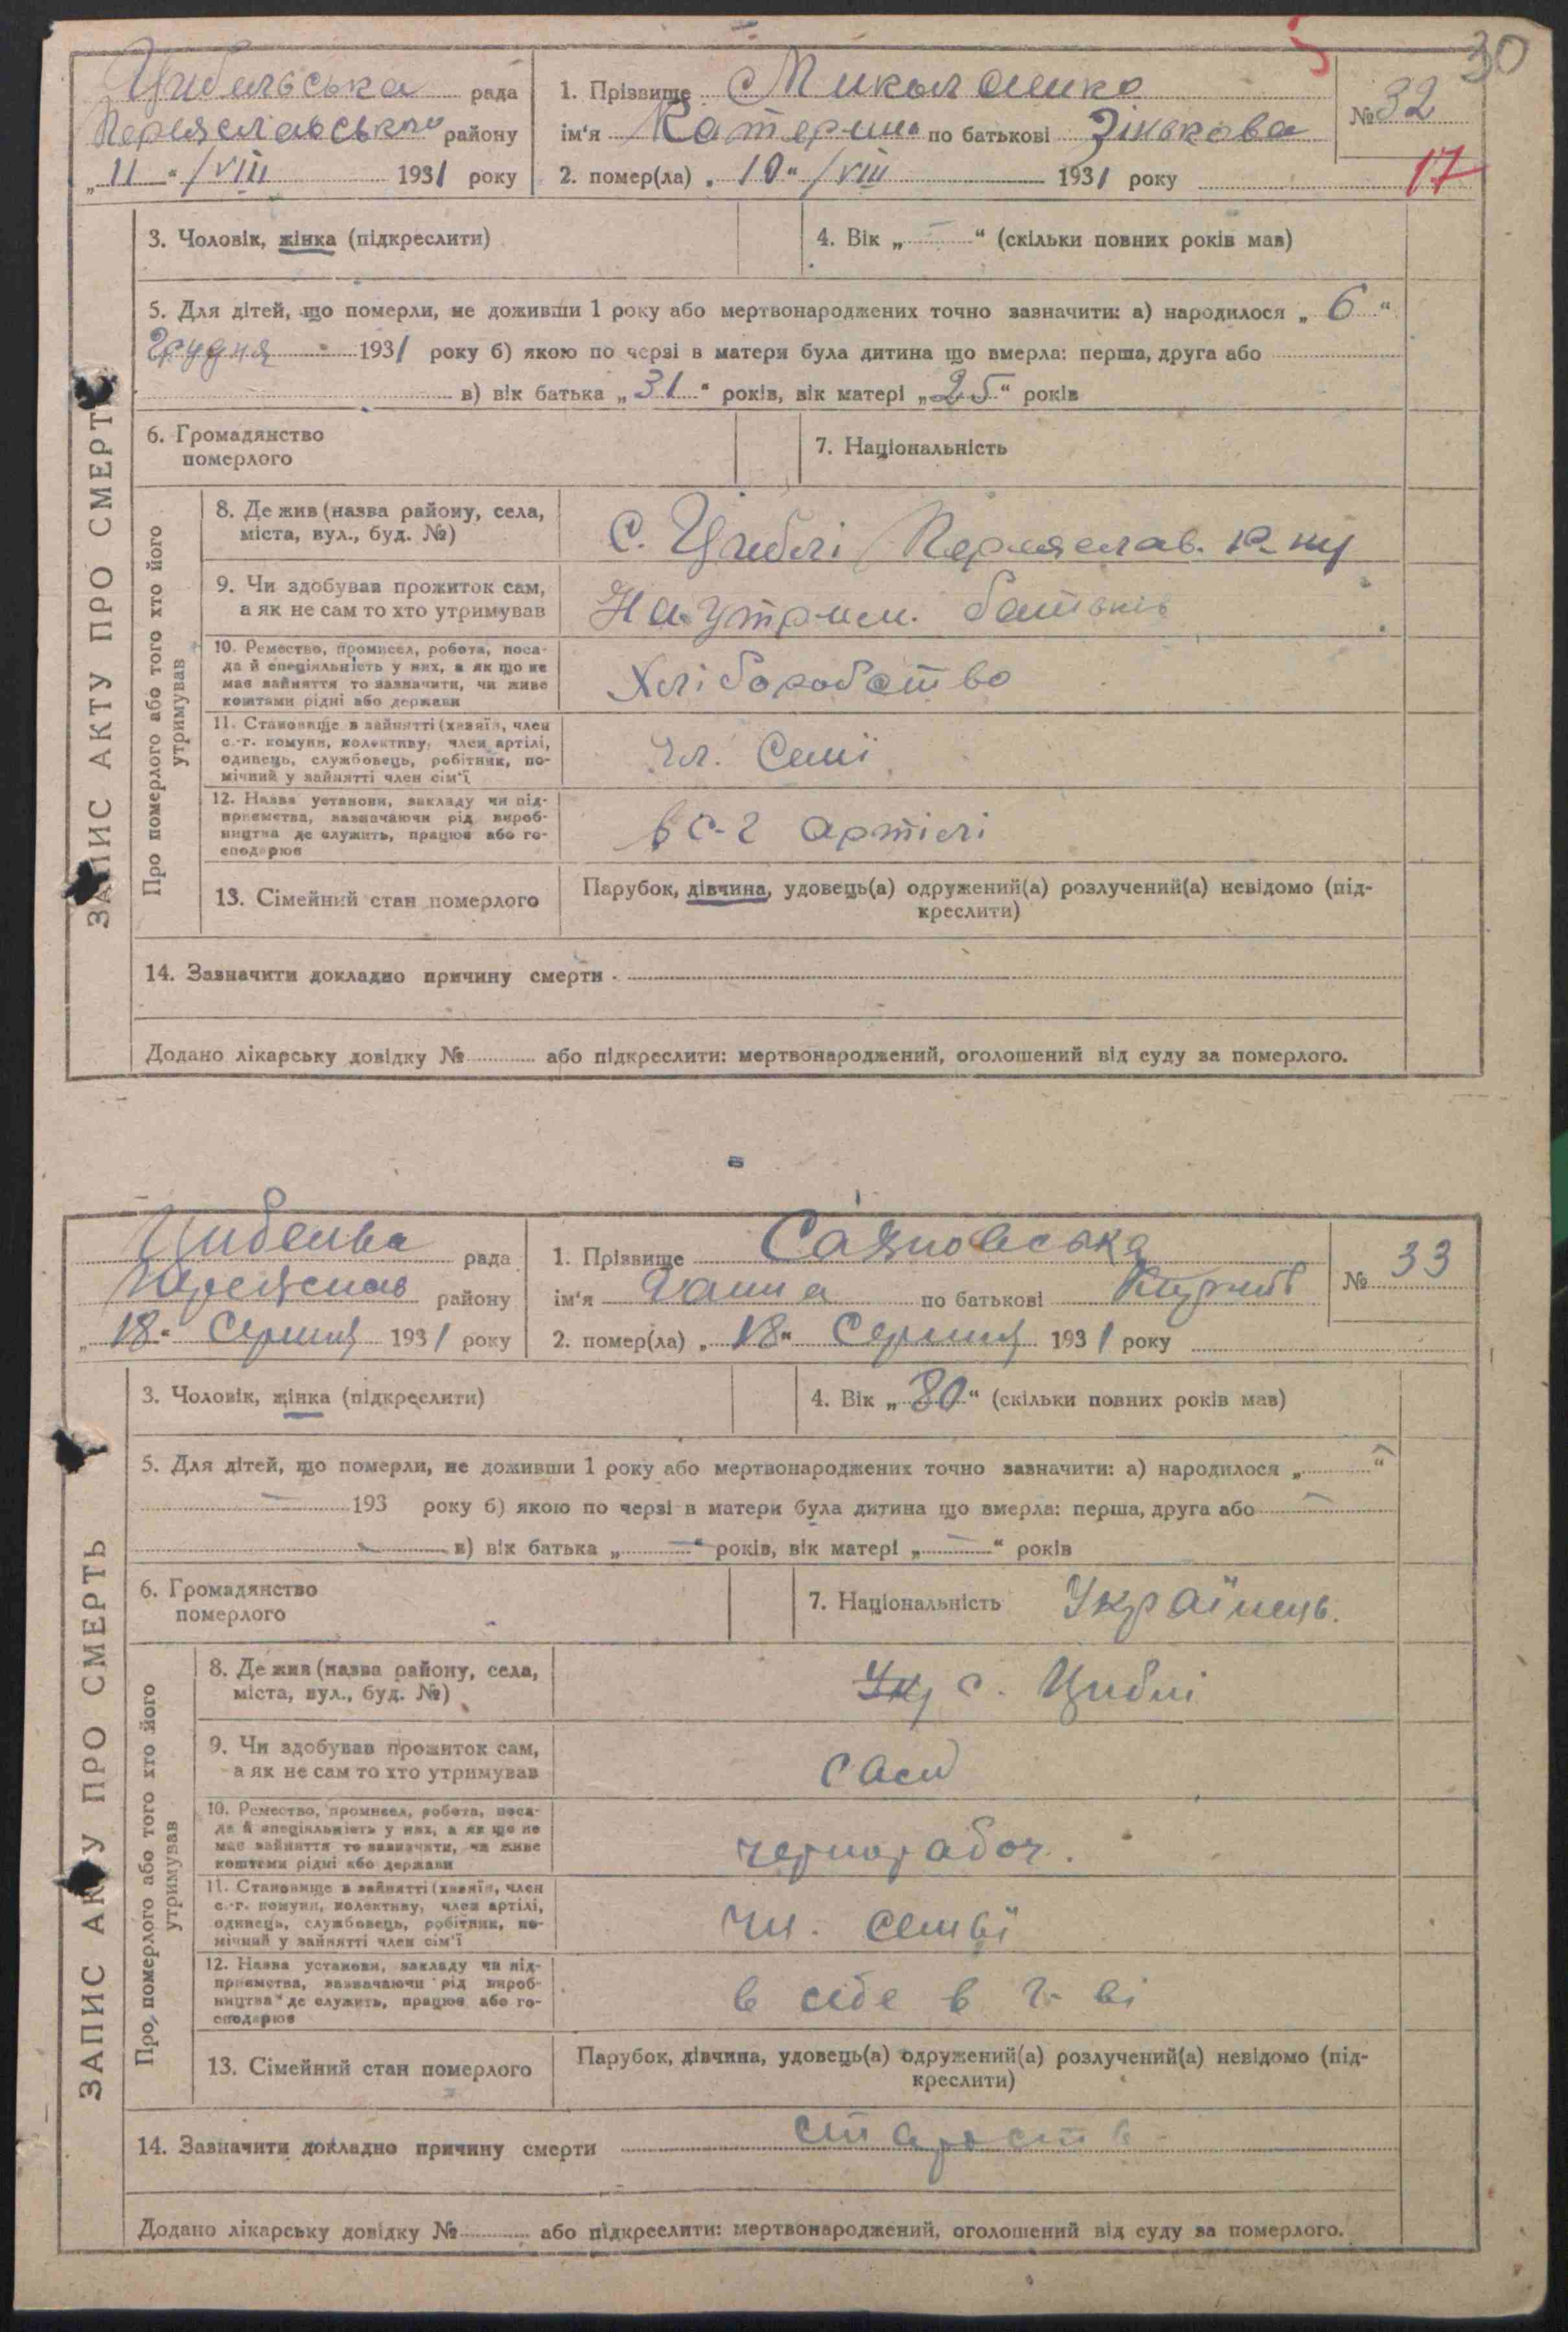 30
Цибельська рада
Переяславського району
„11“ /VIII 1931 року
1. Прізвище Миколаенко
ім'я Катерина по батькові Зінькова
2. помер(ла) „10“ /VIII 1931 року
№ 32
17
3. Чоловік, жінка (підкреслити)
4. Вік „—“ (скільки повних років мав)
5. Для дітей, що померли, не доживши 1 року або мертвонароджених точно зазначити: а) народилося „6“
Грудня 1931 року б) якою по черзі в матери була дитина що вмерла: перша, друга або
в) вік батька „31“ років, вік матері „25“ років
6. Громадянство
померлого
7. Національність
ЗАПИС АКТУ ПРО СМЕРТЬ
Про померлого або того хто його
утримував
8. Де жив (назва району, села,
міста, вул., буд. №)
С. Циблі Переяслав. р-ну
9. Чи здобував прожиток сам,
а як не сам то хто утримував
На утрим. батьків
10. Ремество, промисел, робота, поса-
да й спеціяльність у них, а як що не
має зайняття то зазначити, чи живе
коштами рідні або держави
Хліборобство
11. Становище в зайнятті (хазяїн, член
с.-г. комуни, колективу, член артілі,
одинець, службовець, робітник, по-
мічний у зайнятті член сім'ї
Чл. Семї
12. Назва установи, закладу чи під-
приємства, зазначаючи рід вироб-
ництва де служить, працює або го-
сподарює
в С-г артілі
13. Сімейний стан померлого
Парубок, дівчина, удовець(а) одружений(а) розлучений(а) невідомо (під-
креслити)
14. Зазначити докладно причину смерти
Додано лікарську довідку № або підкреслити: мертвонароджений, оголошений від суду за померлого.
рада
Переяслав району
„18“ Серпня 1931 року
1. Прізвище
ім'я Ганна по батькові
2. помер(ла) „18“ Серпня 1931 року
№ 33
3. Чоловік, жінка (підкреслити)
4. Вік „80“ (скільки повних років мав)
5. Для дітей, що померли, не доживши 1 року або мертвонароджених точно зазначити: а) народилося „—“
— 193 року б) якою по черзі в матери була дитина що вмерла: перша, друга або —
— в) вік батька „—“ років, вік матері „—“ років
6. Громадянство
померлого
7. Національність Українець.
ЗАПИС АКТУ ПРО СМЕРТЬ
Про померлого або того хто його
утримував
8. Де жив (назва району, села,
міста, вул., буд. №)
с. Циблі
9. Чи здобував прожиток сам,
а як не сам то хто утримував
сам
10. Ремество, промисел, робота, поса-
да й спеціяльність у них, а як що не
має зайняття то зазначити, чи живе
коштами рідні або держави
чернорабоч.
11. Становище в зайнятті (хазяїн, член
с.-г. комуни, колективу, член артілі,
одинець, службовець, робітник, по-
мічний у зайнятті член сім'ї
Чл. семьї
12. Назва установи, закладу чи під-
приємства, зазначаючи рід вироб-
ництва де служить, працює або го-
сподарює
в себе в г-ві
13. Сімейний стан померлого
Парубок, дівчина, удовець(а) одружений(а) розлучений(а) невідомо (під-
креслити)
14. Зазначити докладно причину смерти старость
Додано лікарську довідку № або підкреслити: мертвонароджений, оголошений від суду за померлого.